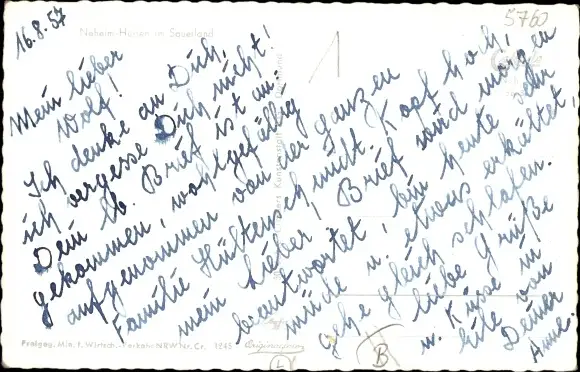 16.8.57
5760
Neheim-Hüsten im Sauerland
Mein lieber
Wolf!
Ich denke an Dich,
ich vergesse Dich nicht!
Dein lb. Brief ist an-
gekommen, wohlgefällig
aufgenommen von der ganzen
Familie Hüttenschmidt. Kopf hoch,
mein Lieber, Brief wird morgen
beantwortet, bin heute sehr
müde u. etwas erkältet,
gehe gleich schlafen.
liebe Grüße
u. Küsse in
Eile von
Deiner
Anne.
Freigeg. Min. f. Wirtsch. Verkehr NRW Nr. Cr. 1245
L
B